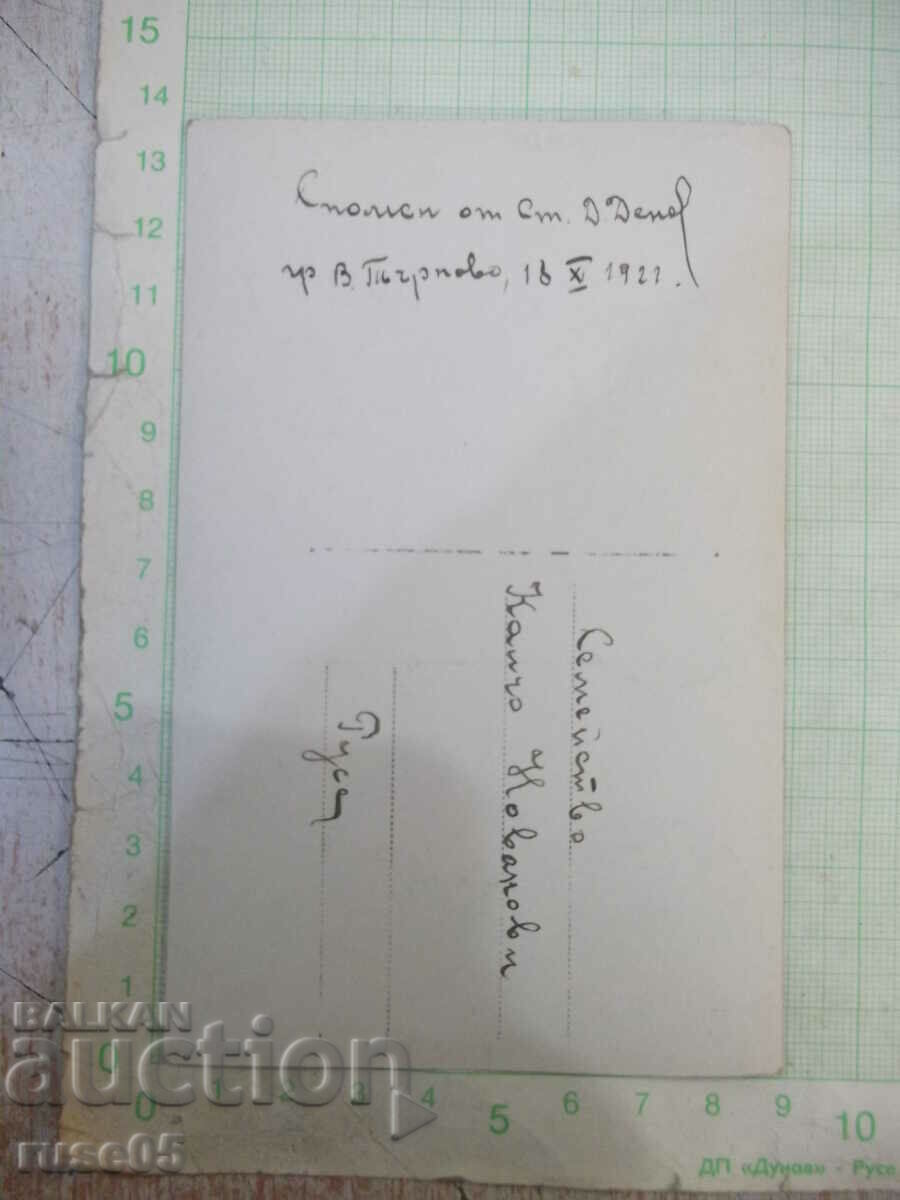 Спомен от Ст. Д. Денев
гр В. Търново, 18 X 1921.
Семейство
Канчо
Русе
15
14
13
12
11
10
9
8
7
6
5
4
3
2
1
0
0 1 2 3 4 5 6 7 8 9 10
ДП «Дунав» - Русе
BALKAN
auction
ruse05